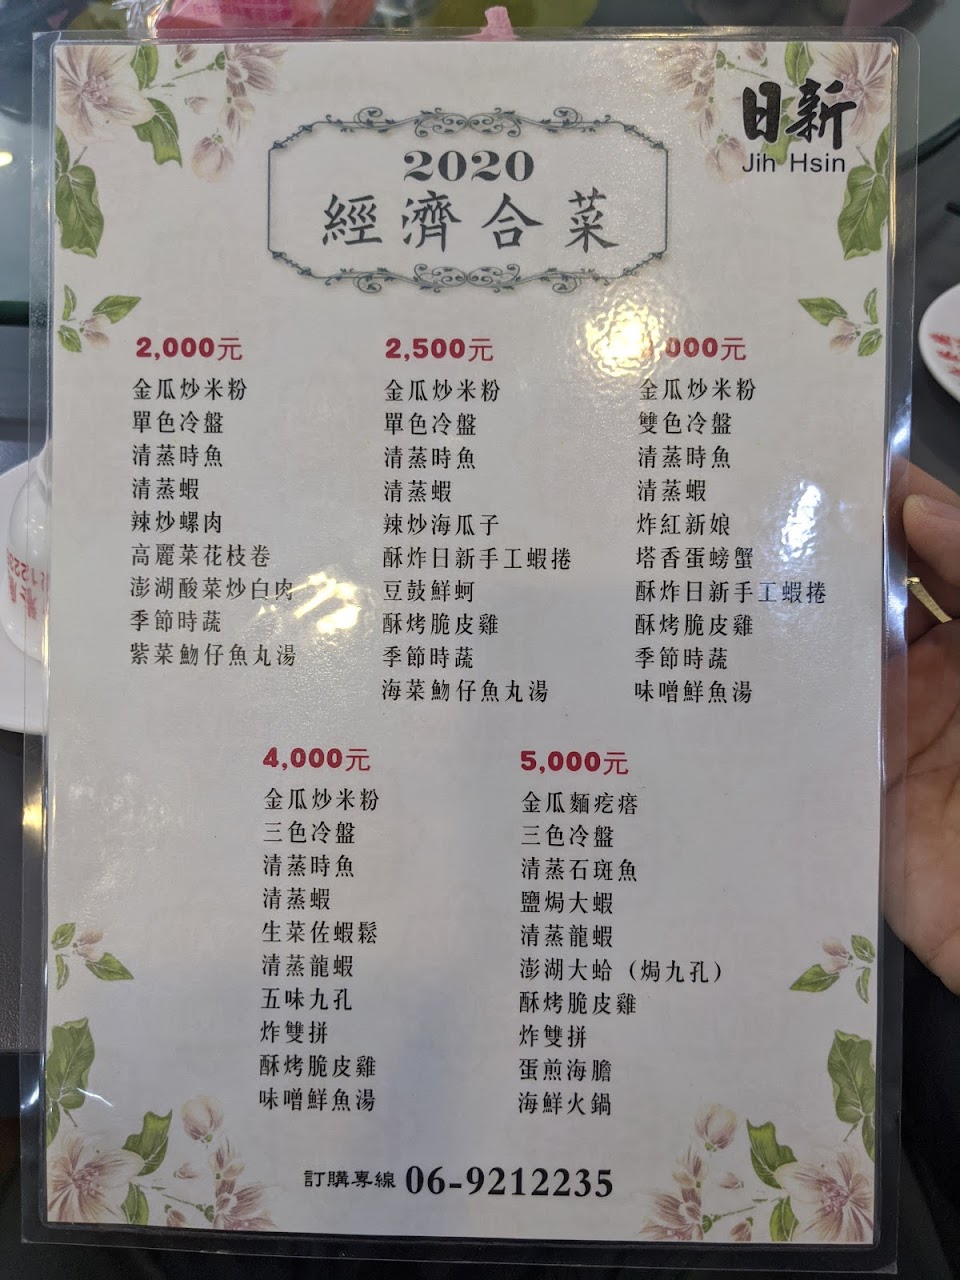 日新
Jih Hsin
2020
經濟合菜
2,000元
金瓜炒米粉
單色冷盤
清蒸時魚
清蒸蝦
辣炒螺肉
高麗菜花枝卷
澎湖酸菜炒白肉
季節時蔬
紫菜魩仔魚丸湯
2,500元
金瓜炒米粉
單色冷盤
清蒸時魚
清蒸蝦
辣炒海瓜子
酥炸日新手工蝦捲
豆鼓鮮蚵
酥烤脆皮雞
季節時蔬
海菜魩仔魚丸湯
000元
金瓜炒米粉
雙色冷盤
清蒸時魚
清蒸蝦
炸紅新娘
塔香蛋螃蟹
酥炸日新手工蝦捲
酥烤脆皮雞
季節時蔬
味噌鮮魚湯
4,000元
金瓜炒米粉
三色冷盤
清蒸時魚
清蒸蝦
生菜佐蝦鬆
清蒸龍蝦
五味九孔
炸雙拼
酥烤脆皮雞
味噌鮮魚湯
5,000元
金瓜麵疙瘩
三色冷盤
清蒸石斑魚
鹽焗大蝦
清蒸龍蝦
澎湖大蛤（焗九孔）
酥烤脆皮雞
炸雙拼
蛋煎海膽
海鮮火鍋
訂購專線 06-9212235